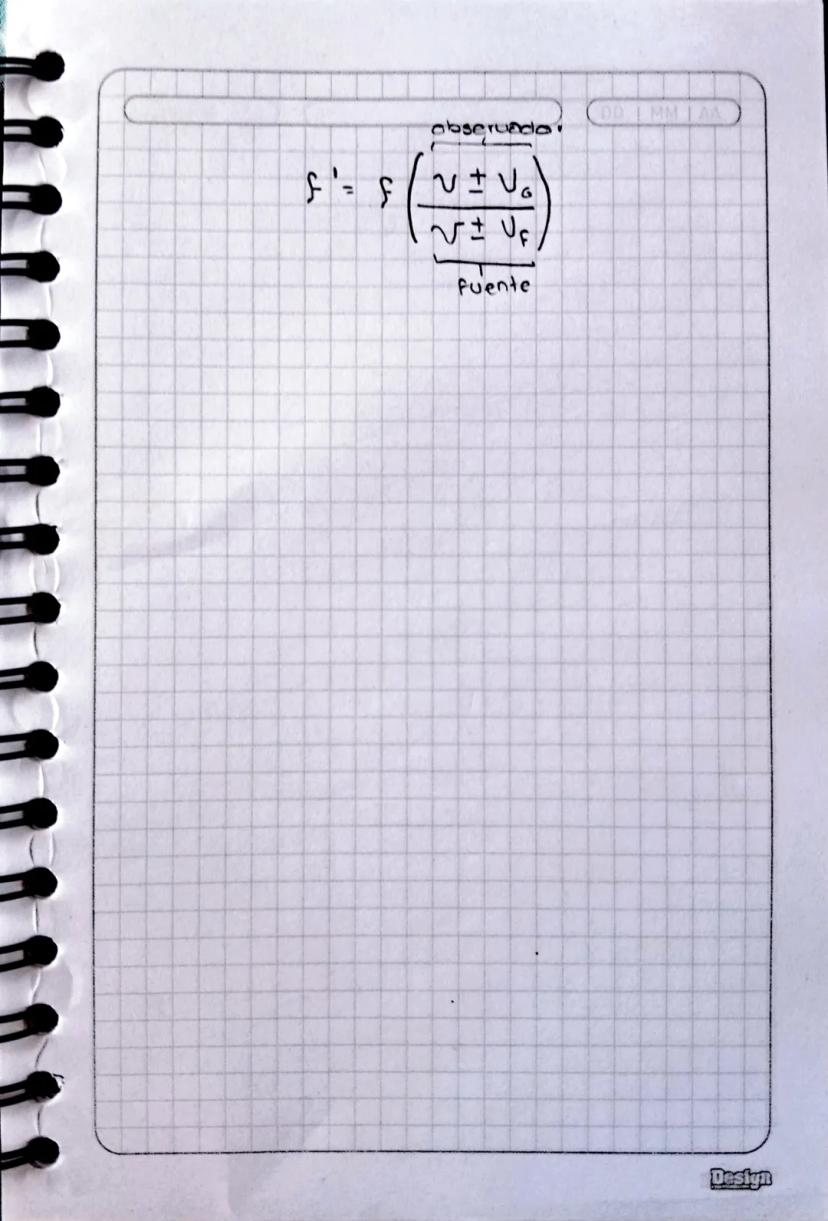 DD | MM | AA
observador
f' = f ( v ± v₀ / v ± v_F )
fuente
Design